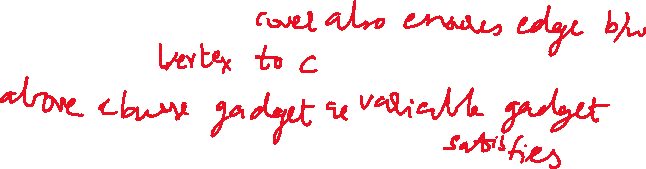 cover also ensures edge b/w
vertex to C
above clause gadget & variable gadget
satisfies